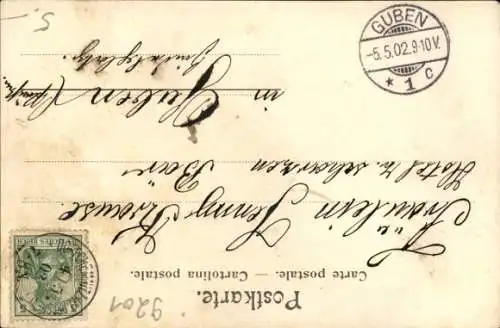 Postkarte.
Carte postale. — Cartolina postale.
Fräulein Jenny Krause.
Hotel z. schwarzen Bär
in Guben
GUBEN
-5.5.02.9-10V.
* 1 c
9201
5.